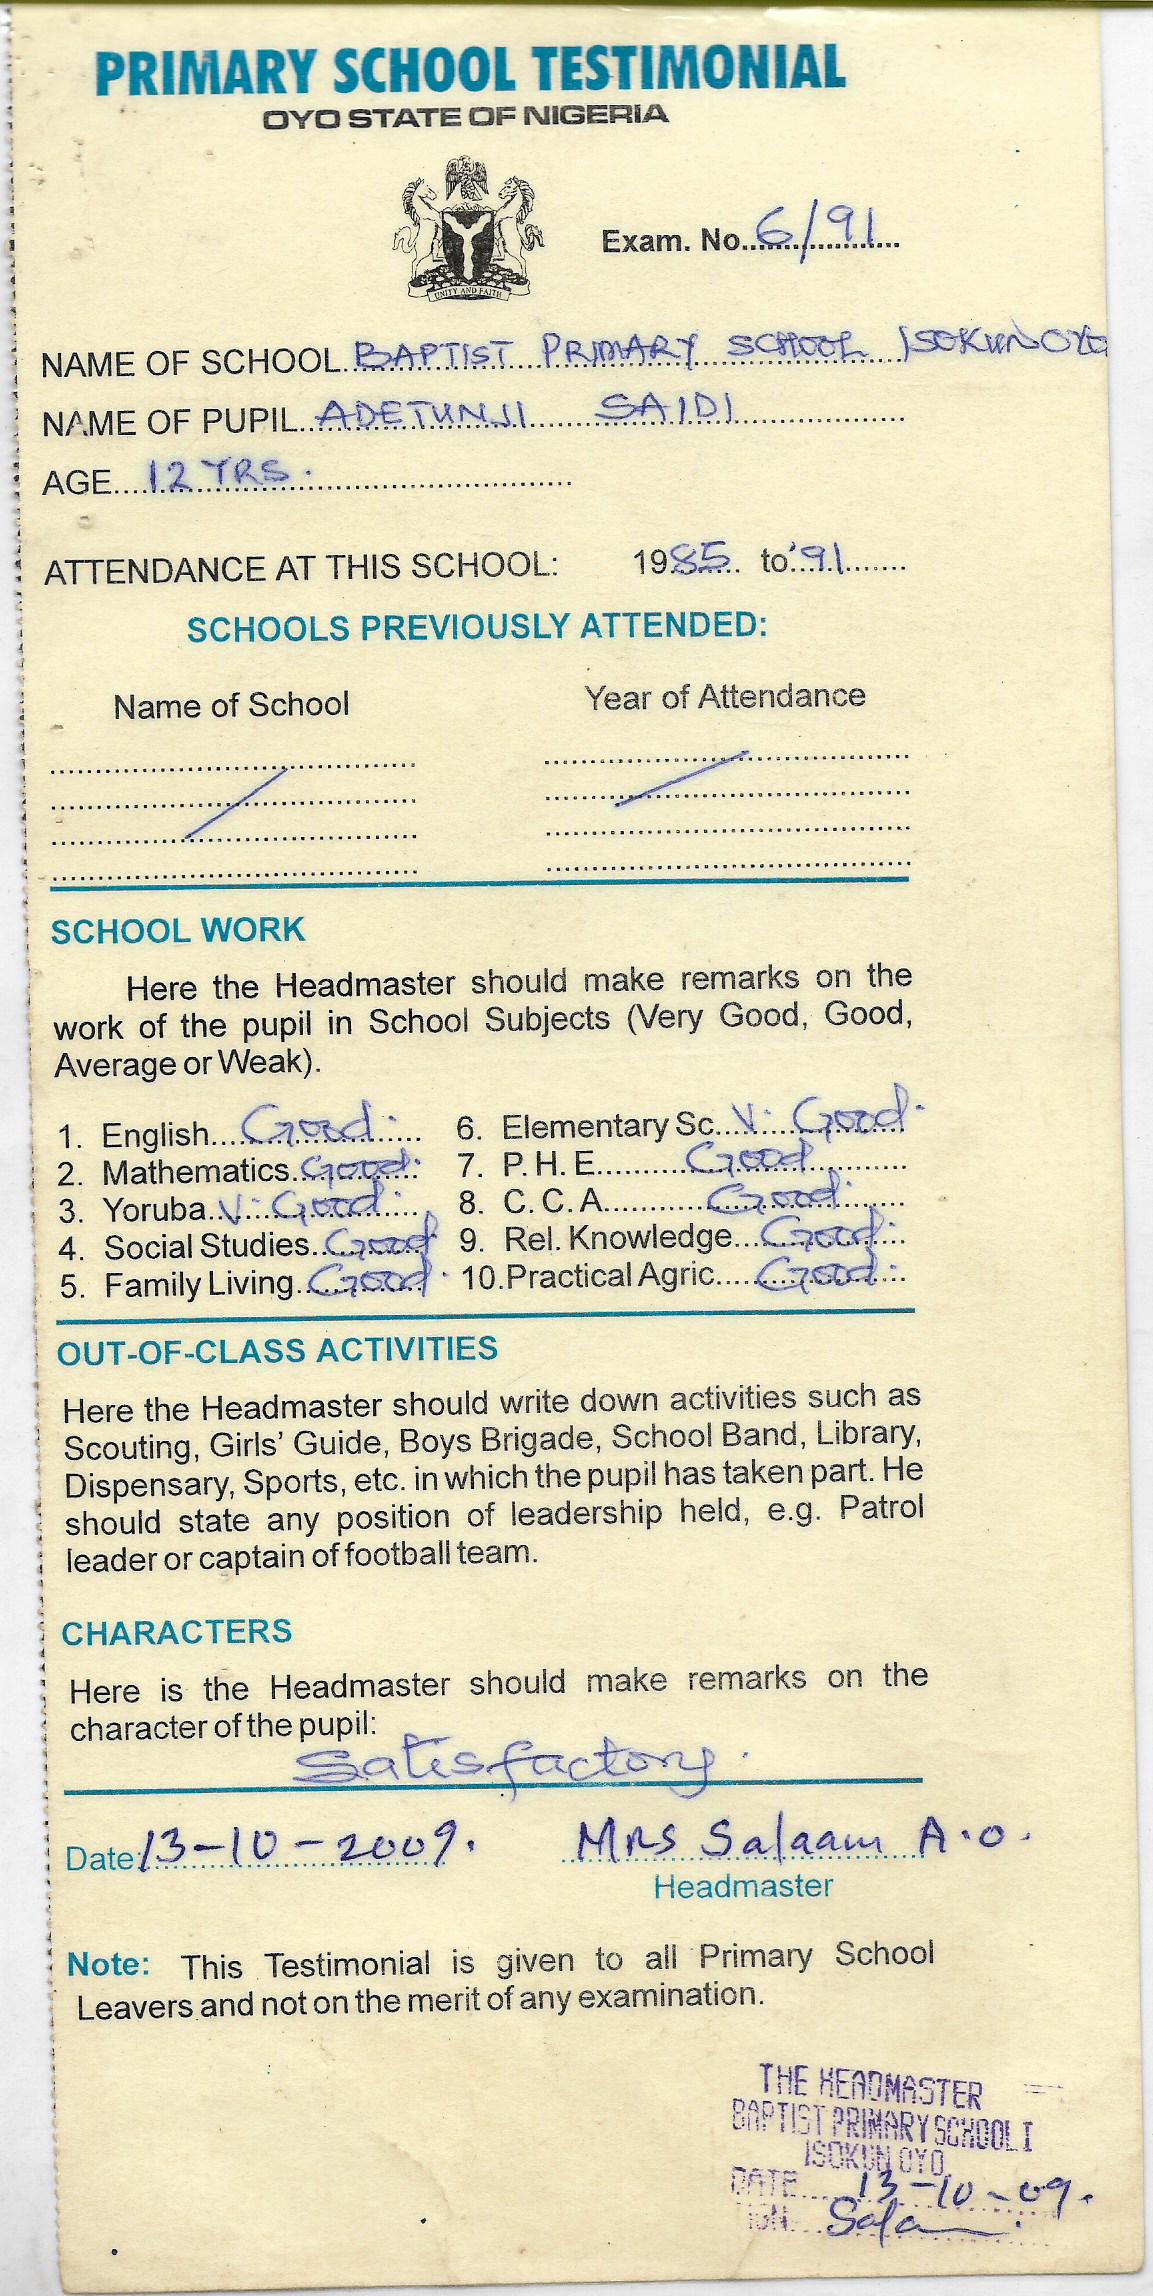 PRIMARY SCHOOL TESTIMONIAL
OYO STATE OF NIGERIA
UNITY AND FAITH
Exam. No. 6/91
NAME OF SCHOOL BAPTIST PRIMARY SCHOOL ISOKUN OYO
NAME OF PUPIL ADETUNJI SAIDI
AGE 12 YRS.
ATTENDANCE AT THIS SCHOOL: 1985 to '91
SCHOOLS PREVIOUSLY ATTENDED:
Name of School Year of Attendance
SCHOOL WORK
Here the Headmaster should make remarks on the
work of the pupil in School Subjects (Very Good, Good,
Average or Weak).
1. English Good. 6. Elementary Sc. V. Good.
2. Mathematics Good. 7. P. H. E. Good.
3. Yoruba V. Good. 8. C. C. A. Good.
4. Social Studies Good. 9. Rel. Knowledge Good.
5. Family Living Good. 10. Practical Agric. Good.
OUT-OF-CLASS ACTIVITIES
Here the Headmaster should write down activities such as
Scouting, Girls' Guide, Boys Brigade, School Band, Library,
Dispensary, Sports, etc. in which the pupil has taken part. He
should state any position of leadership held, e.g. Patrol
leader or captain of football team.
CHARACTERS
Here is the Headmaster should make remarks on the
character of the pupil:
Satisfactory.
Date: 13-10-2009. Mrs Salaam A.O.
Headmaster
Note: This Testimonial is given to all Primary School
Leavers and not on the merit of any examination.
THE HEADMASTER
BAPTIST PRIMARY SCHOOL I
ISOKUN OYO
DATE 13-10-09.